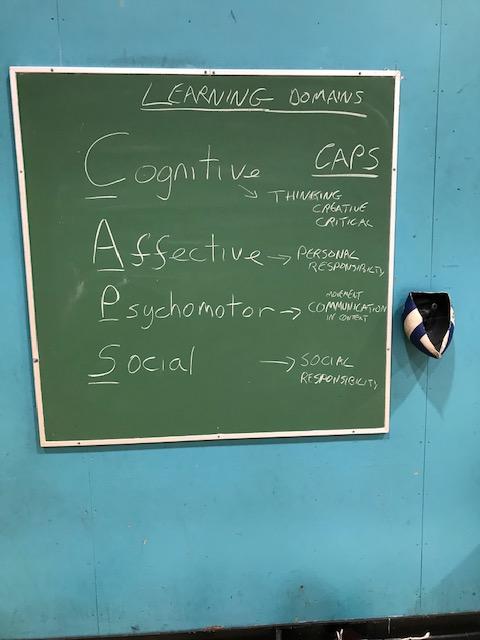 LEARNING DOMAINS
CAPS
Cognitive
THINKING
CREATIVE
CRITICAL
Affective → PERSONAL
RESPONSIBILITY
MOVEMENT
Psychomotor → COMMUNICATION
IN CONTEXT
Social → SOCIAL
RESPONSIBILITY